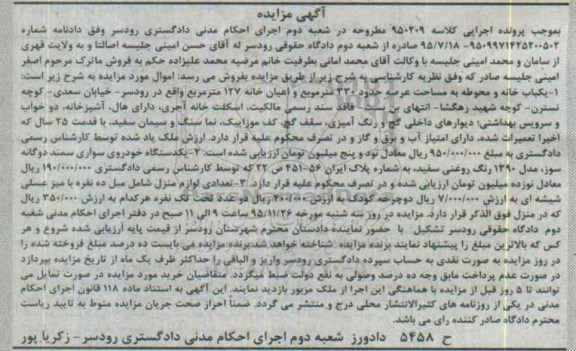 آگهی مزایده
بموجب پرونده اجرایی کلاسه ۹۵۰۲۰۹ مطروحه در شعبه دوم اجرای احکام مدنی دادگستری رودسر وفق دادنامه شماره
۹۵۰۹۹۷۱۴۲۵۲۰۰۵۰۲ -۹۵/۷/۱۸ صادره از شعبه دوم دادگاه حقوقی رودسر له آقای حسن امینی جلیسه اصالتا و به ولایت قهری
از سامان و محمد امینی جلیسه با وکالت آقای محمد امانی بطرفیت خانم مرضیه محمد علیزاده حکم به فروش ماترک مرحوم اصغر
امینی جلیسه صادر که وفق نظریه کارشناسی به شرح زیر از طریق مزایده بفروش می رسد: اموال مورد مزایده به شرح زیر است:
۱-یکباب خانه و محوطه به مساحت عرصه حدود ۳۳۰ مترمربع و اعیان خانه ۱۲۷ مترمربع واقع در رودسر- خیابان سعدی- کوچه
نسترن- کوچه شهید رهگشا- انتهای بن بست - فاقد سند رسمی مالکیت، اسکلت خانه آجری، دارای هال، آشپزخانه، دو خواب
و سرویس بهداشتی؛ دیوارهای داخلی گچ و رنگ آمیزی، سقف گچ، کف موزاییک، نما سنگ و سیمان سفید، با قدمت ۲۵ سال که
اخیرا تعمیرات شده، دارای امتیاز آب و برق و گاز و در تصرف محکوم علیه قرار دارد. ارزش ملک یاد شده توسط کارشناس رسمی
دادگستری به مبلغ ۹۵۰/۰۰۰/۰۰۰ ریال معادل نود و پنج میلیون تومان ارزیابی شده است ۲-یکدستگاه خودروی سواری سمند دوگانه
سوز، مدل ۱۳۹۰ رنگ روغنی سفید، به شماره پلاک ایران ۵۶-۴۵۱ ص ۲۲ که توسط کارشناس رسمی دادگستری ۱۹۰/۰۰۰/۰۰۰ ریال
معادل نوزده میلیون تومان ارزیابی شده و در تصرف محکوم علیه قرار دارد. ۳-تعدادی لوازم منزل شامل مبل ده نفره با میز عسلی
شیشه ای به ارزش ۷/۰۰۰/۰۰۰ ریال دوچرخه کودک به ارزش ۴۰۰/۰۰۰ ریال دو عدد تخت تک نفره هرکدام به ارزش ۳۵۰/۰۰۰ ریال
که در منزل فوق الذکر قرار دارد. مزایده در روز سه شنبه مورخه ۹۵/۱۱/۲۶ ساعت ۹ الی ۱۱ صبح در دفتر اجرای احکام مدنی شعبه
دوم دادگاه حقوقی رودسر تشکیل با حضور نماینده دادستان محترم شهرستان رودسر از قیمت پایه ارزیابی شده شروع و هر
کس که بالاترین مبلغ را پیشنهاد نمایند برنده مزایده شناخته خواهد شد.برنده مزایده می بایست ده درصد مبلغ فروخته شده را
در روز مزایده به صورت نقدی به حساب سپرده دادگستری رودسر واریز و الباقی را حداکثر ظرف یک ماه از تاریخ مزایده بپردازد
در صورت عدم پرداخت مابق وجه ده درصد وصولی به نفع دولت ضبط میگردد. متقاضیان خرید مورد مزایده در صورت تمایل می
توانند تا ۵ روز قبل از مزایده با هماهنگی این اجرا از ملک مزبور بازدید نمایند. این آگهی به استناد ماده ۱۱۸ قانون اجرای احکام
مدنی در یکی از روزنامه های کثیرالانتشار محلی درج و منتشر می گردد. ضمناً احراز صحت جریان مزایده منوط به تایید ریاست
محترم دادگاه صادر کننده رای می باشد.
ح ۵۴۵۸ دادورز شعبه دوم اجرای احکام مدنی دادگستری رودسر- زکریا پور